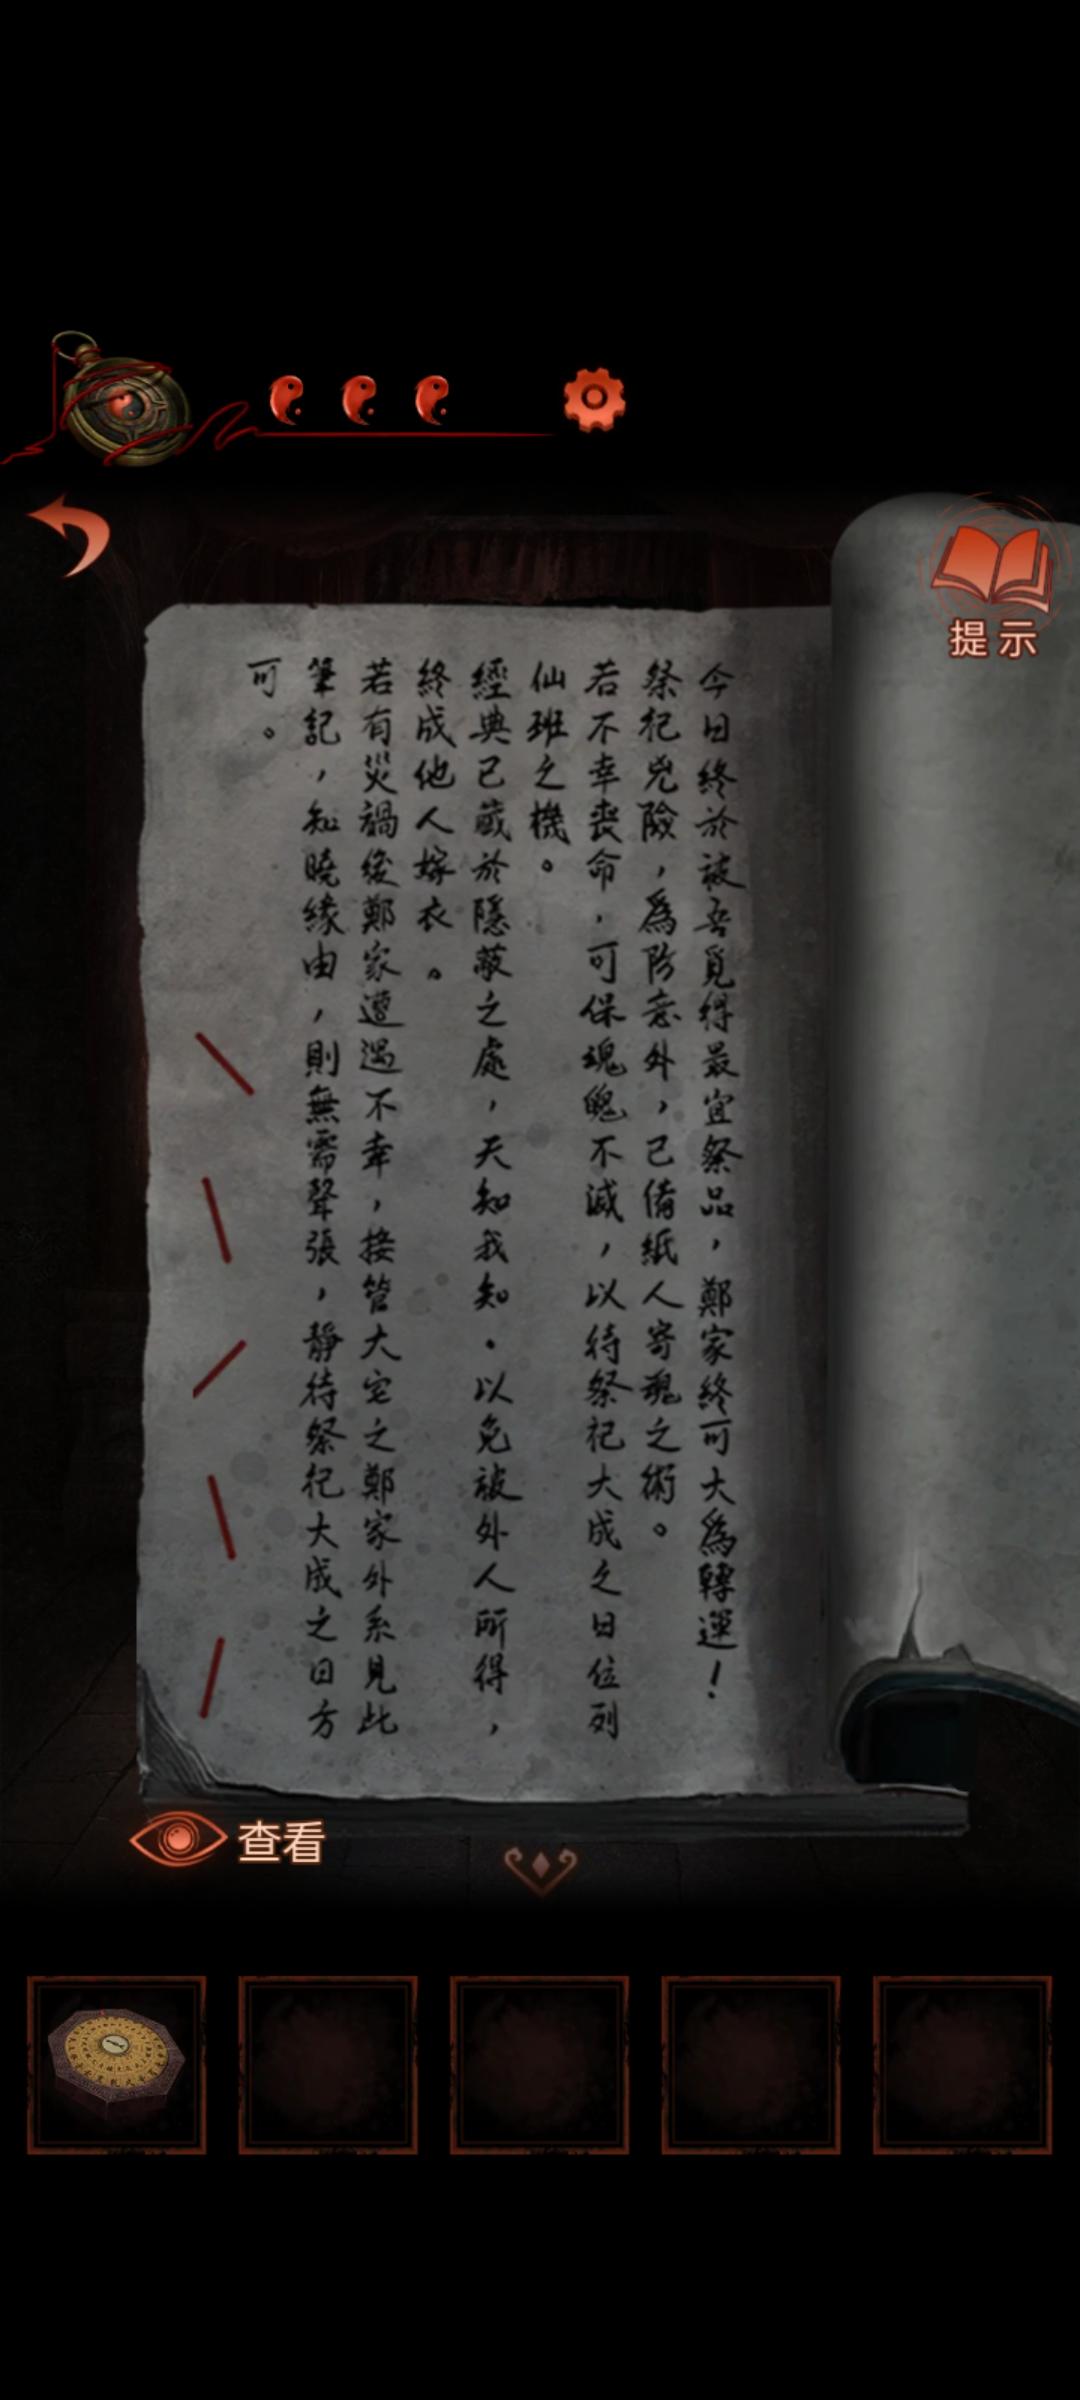 提示
今日終於被吾覓得最宜祭品，鄭家終可大為轉運！
祭祀兇險，為防意外，已備紙人寄魂之術。
若不幸喪命，可保魂魄不滅，以待祭祀大成之日位列
仙班之機。
經典已藏於隱蔽之處，天知我知。以免被外人所得，
終成他人嫁衣。
若有災禍後鄭家遭遇不幸，接管大宅之鄭家外系見此
筆記，知曉緣由，則無需聲張，靜待祭祀大成之日方
可。
查看